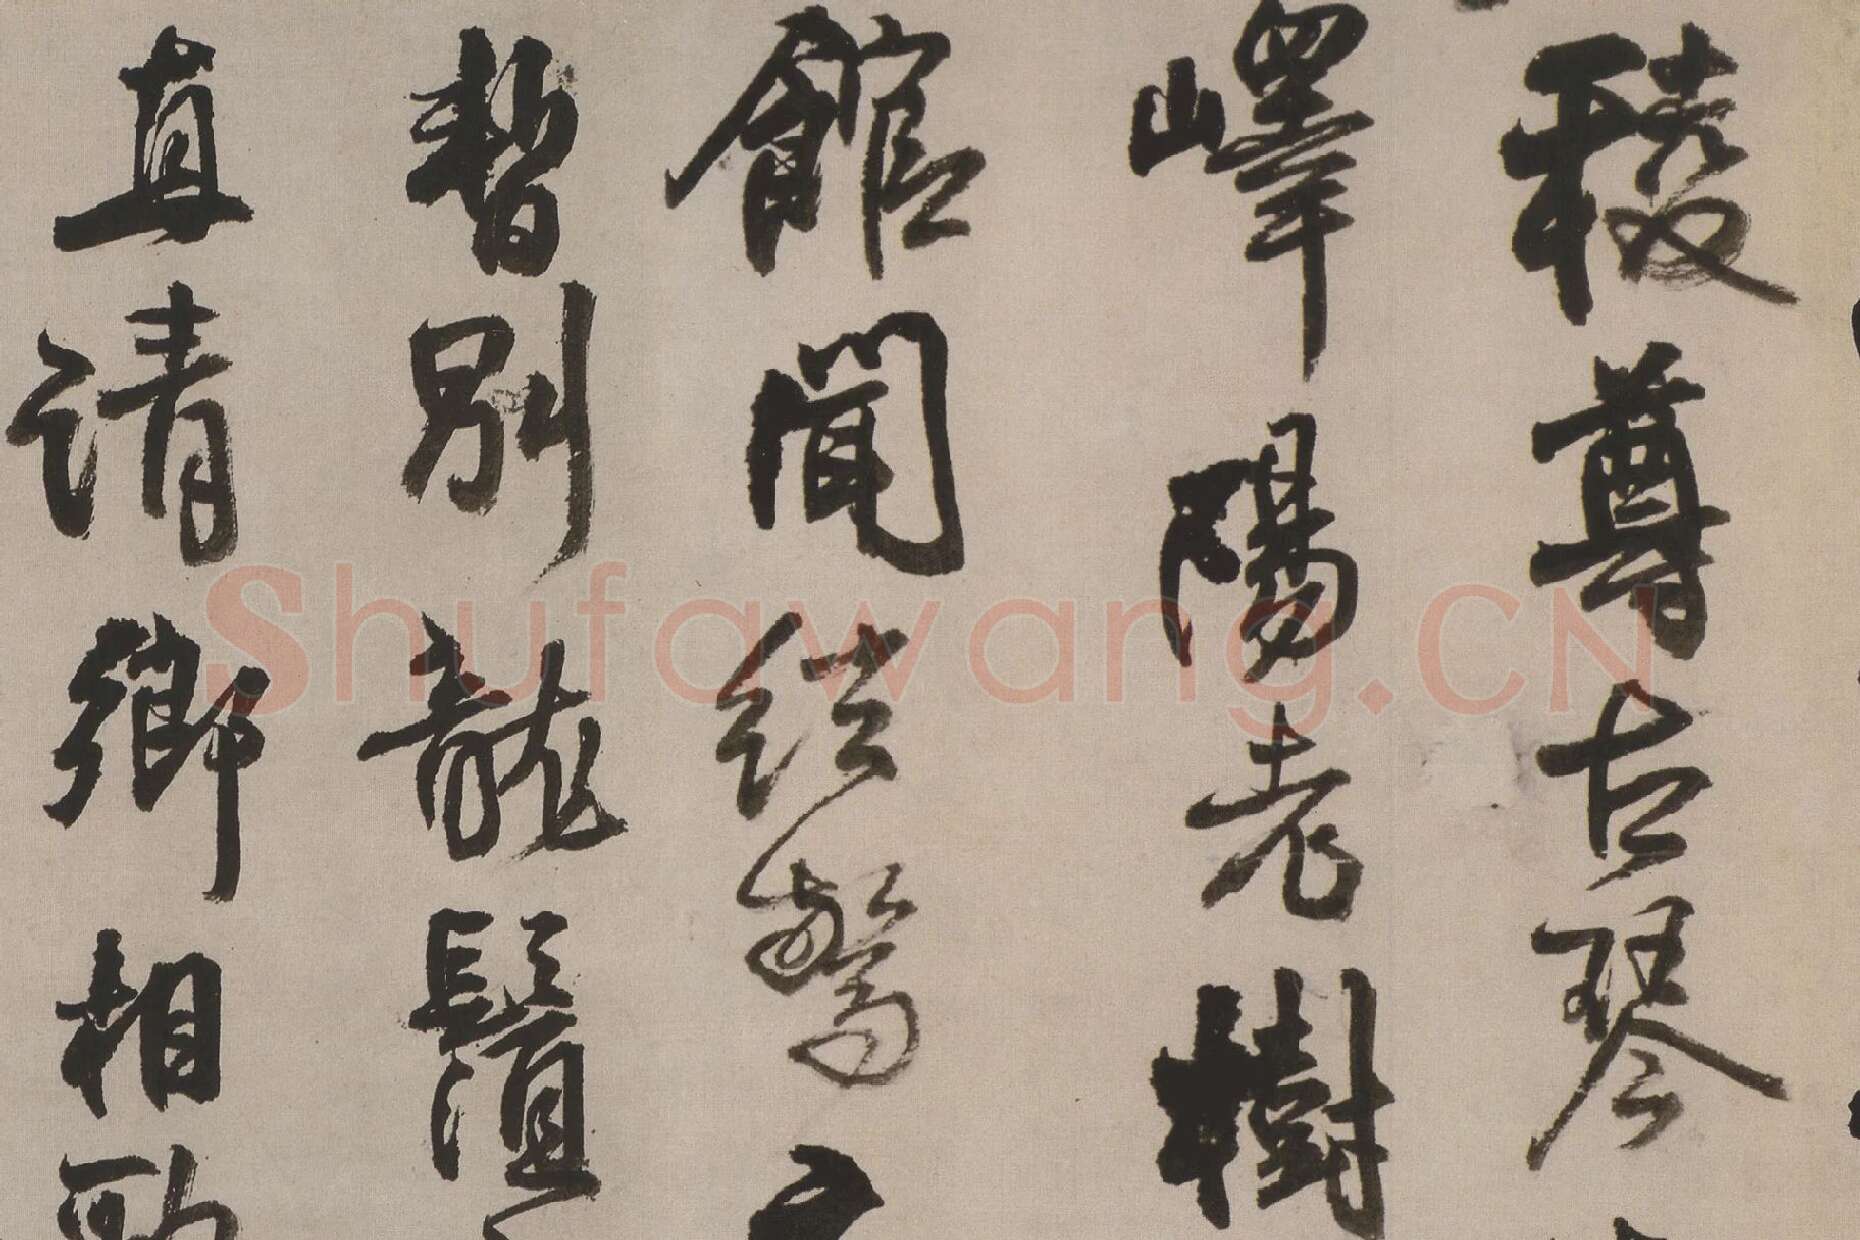 稜尊古琴
嶧陽老樹
館閒繞鶩
暫別龍鬚
真請鄉相
Shufawang.CN